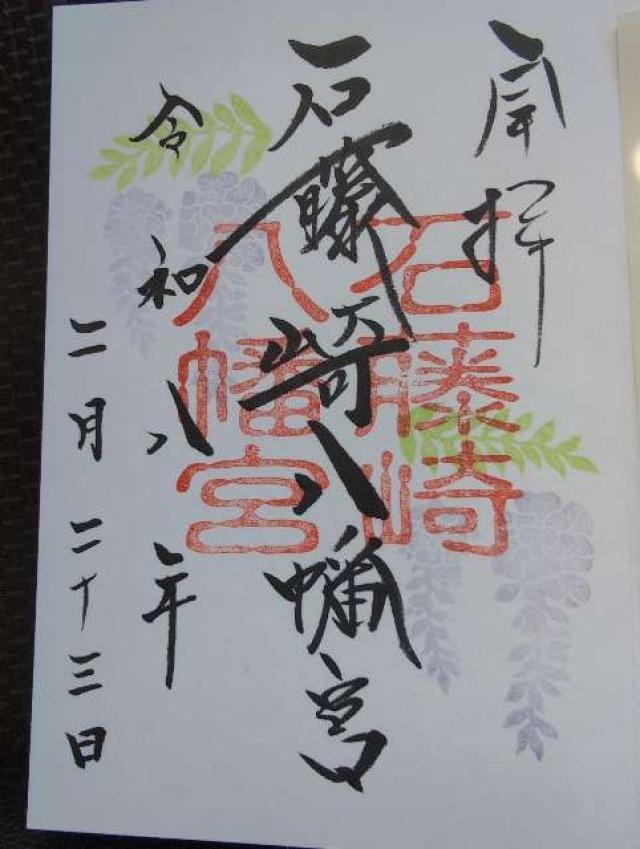 奉拝
石藤崎八幡宮
石藤崎
八幡宮
令和八年
二月二十三日